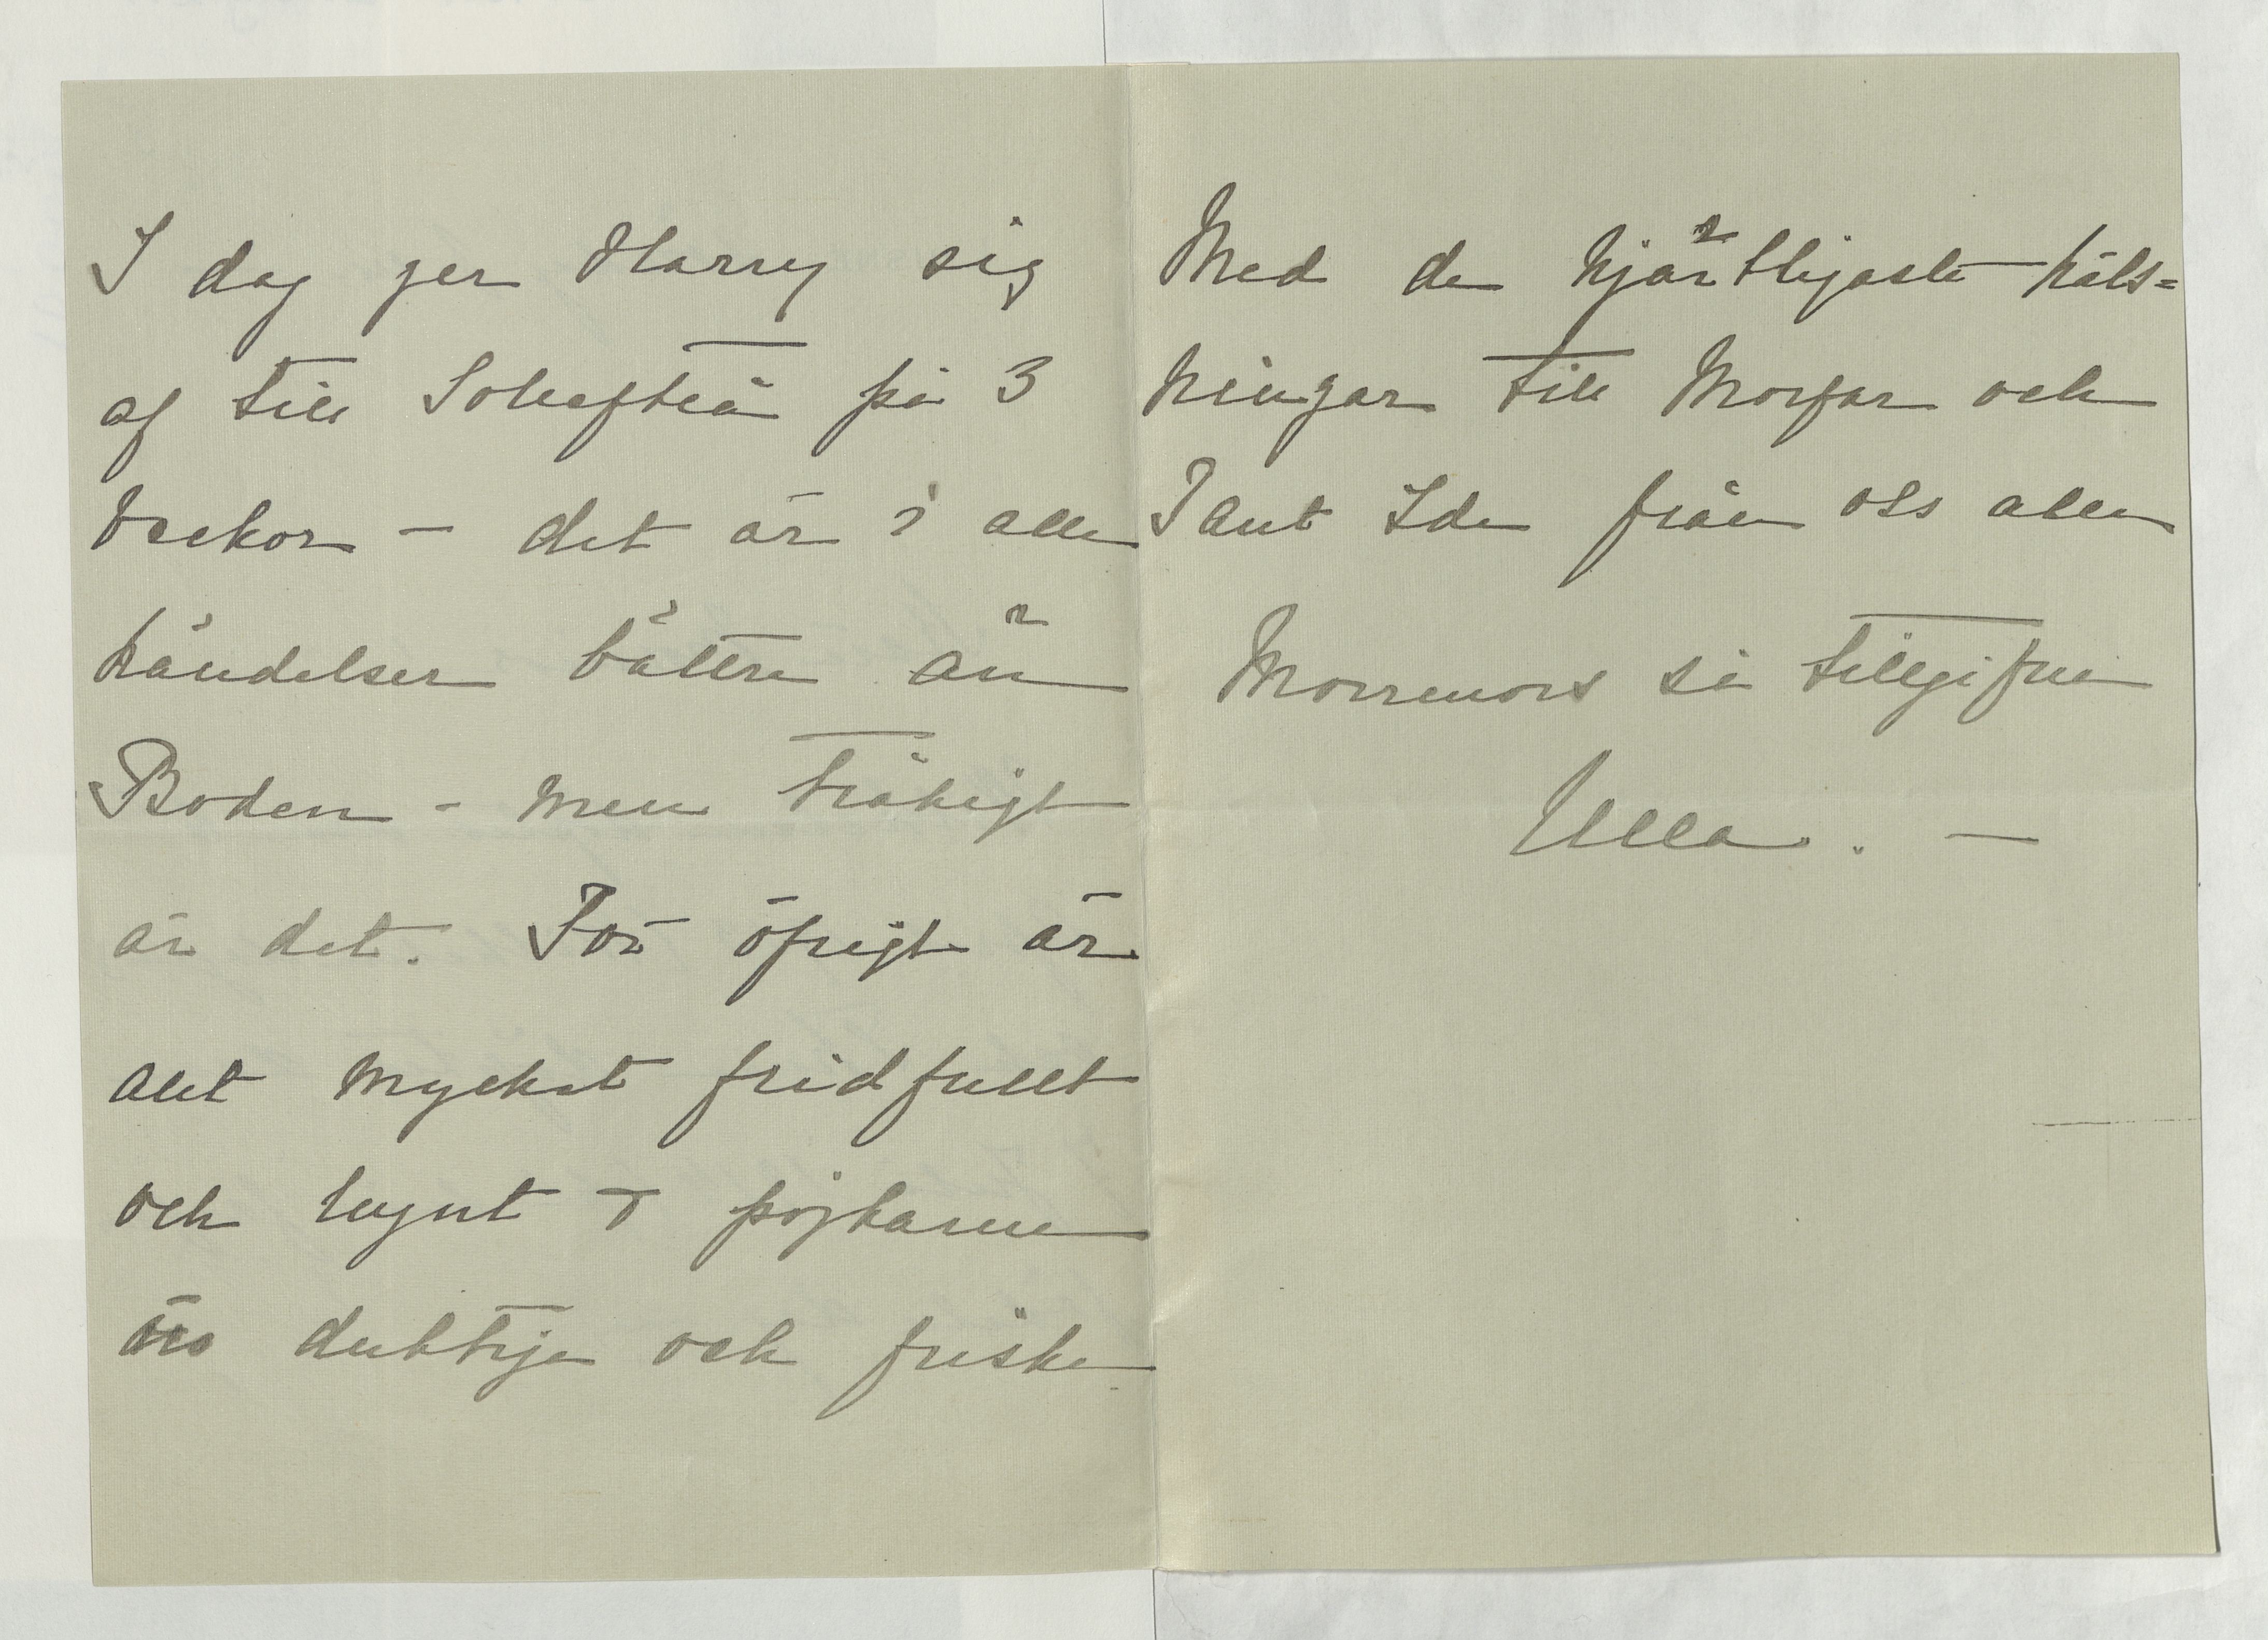 I dag ger Harry sig
af till Sollefteå på 3
veckor – det är i alla
händelser bättre än
Boden – men tråkigt
är det. För öfrigt är
allt mycket fridfullt
och lugnt & pojkarne
äro duktiga och friska
Med de hjärtligaste häls=
ningar till Morfar och
Tant Ida från oss alla
Mormors så tillgifna
Ulla. –